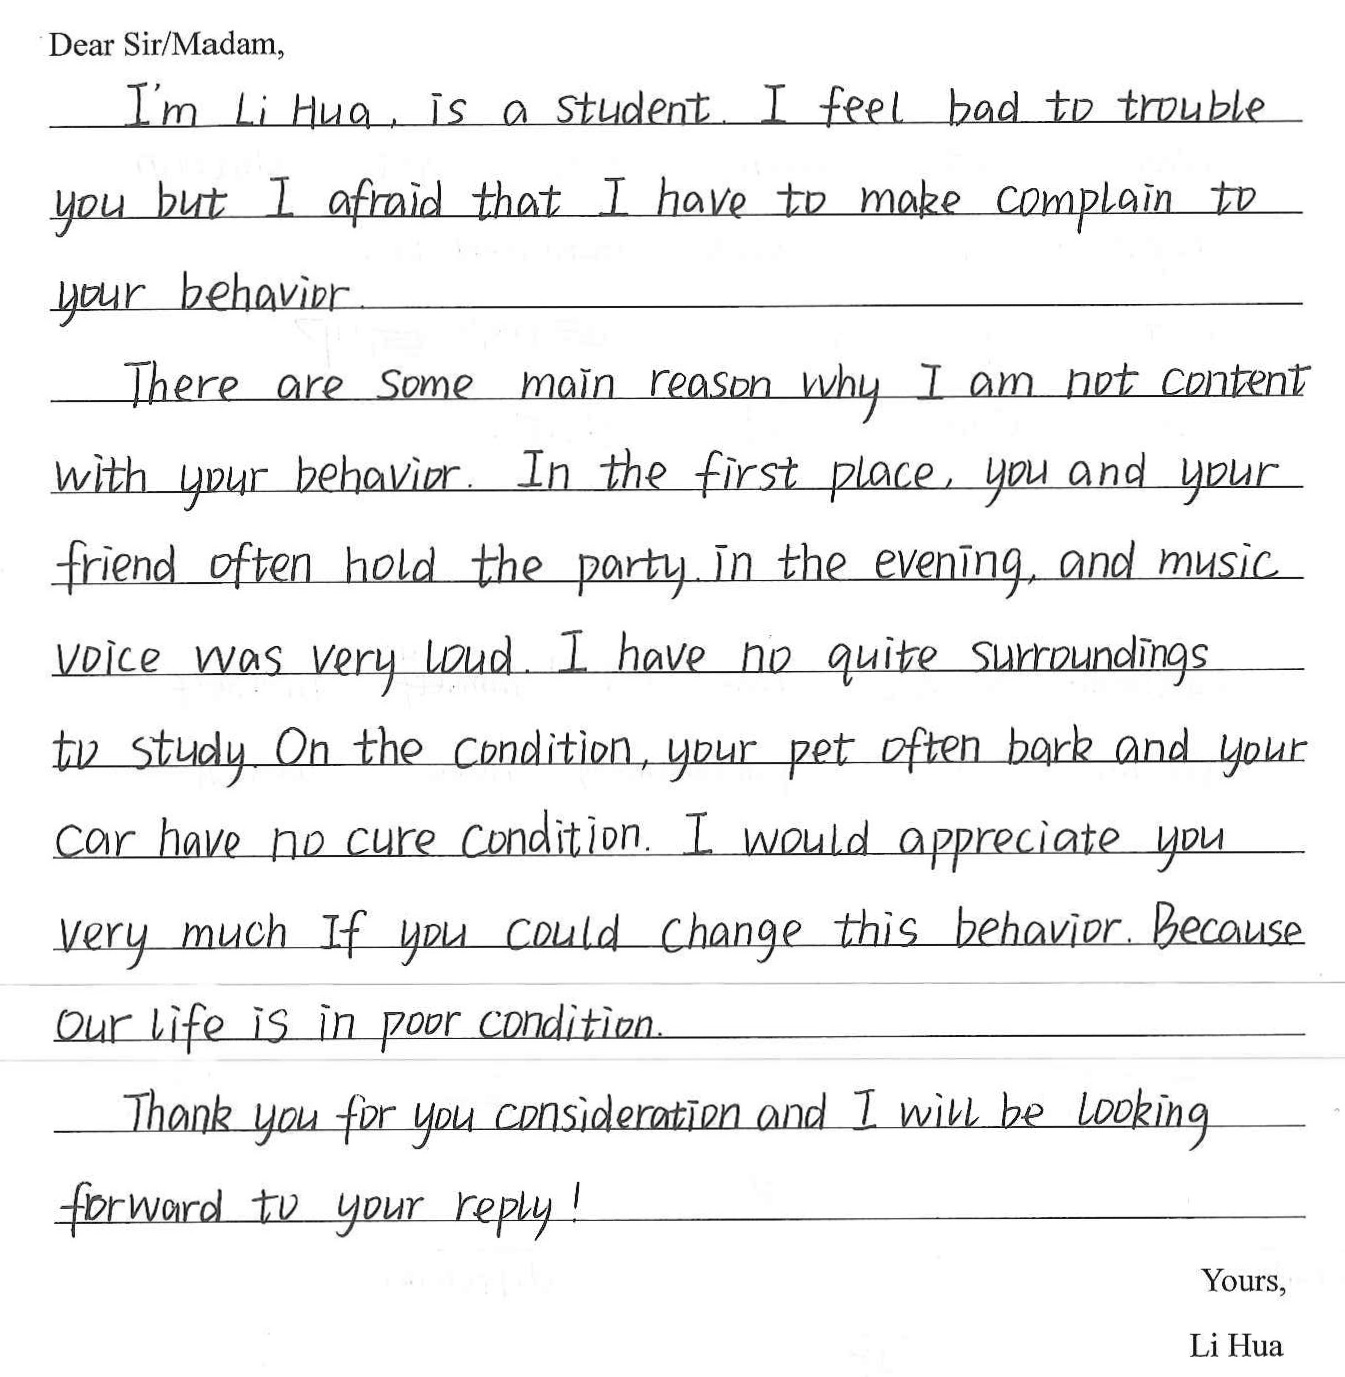 Dear Sir/Madam,
I'm Li Hua, is a student. I feel bad to trouble
you but I afraid that I have to make complain to
your behavior.
There are some main reason why I am not content
with your behavior. In the first place, you and your
friend often hold the party in the evening, and music
voice was very loud. I have no quite surroundings
to study. On the condition, your pet often bark and your
car have no cure condition. I would appreciate you
very much If you could change this behavior. Because
our life is in poor condition.
Thank you for you consideration and I will be looking
forward to your reply!
Yours,
Li Hua